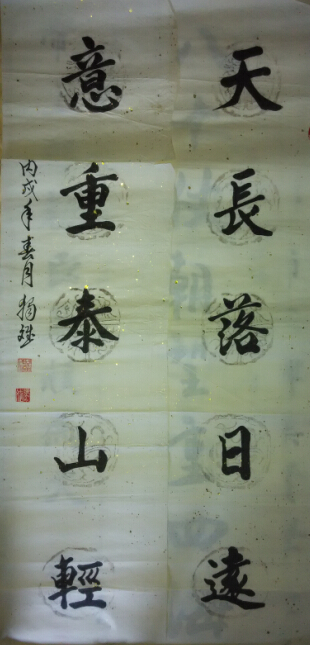 天長落日遠
意重泰山輕
丙戌年春月